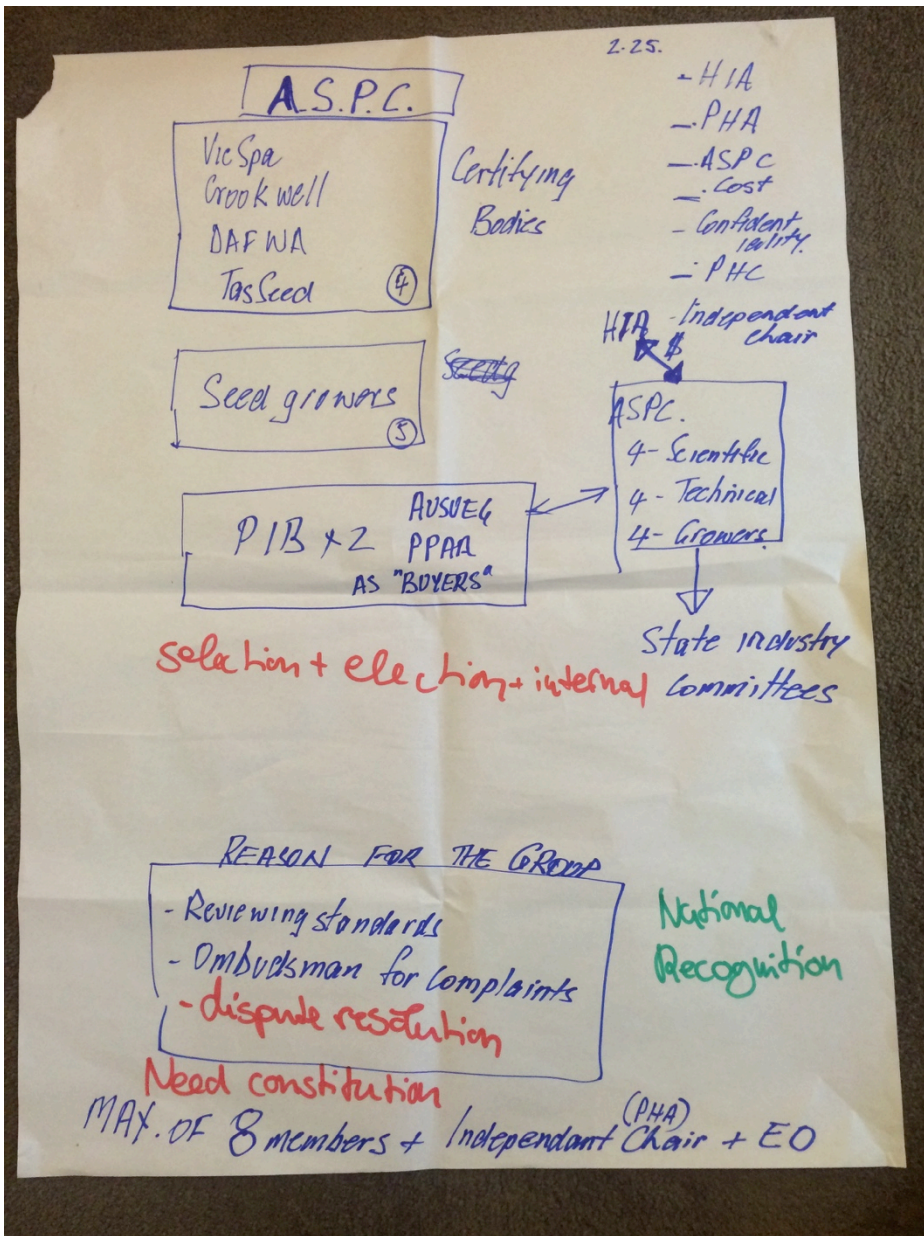 2.25.
A.S.P.C.
VicSpa
Crookwell
DAFWA
TasSeed ④
Certifying
Bodies
- HIA
- PHA
- ASPC
- Cost
- Confident
iality.
- PHC
- Independent
Chair
HIA
$
Seed growers
⑤
ASPC.
4- Scientific
4- Technical
4- Growers.
PIB x2
AUSVEG
PPAA
AS "BUYERS"
State industry
Committees
selection + election + internal
REASON FOR THE GROUP
- Reviewing standards
- Ombudsman for complaints
- dispute resolution
National
Recognition
Need constitution
(PHA)
MAX. OF 8 members + Independant Chair + EO